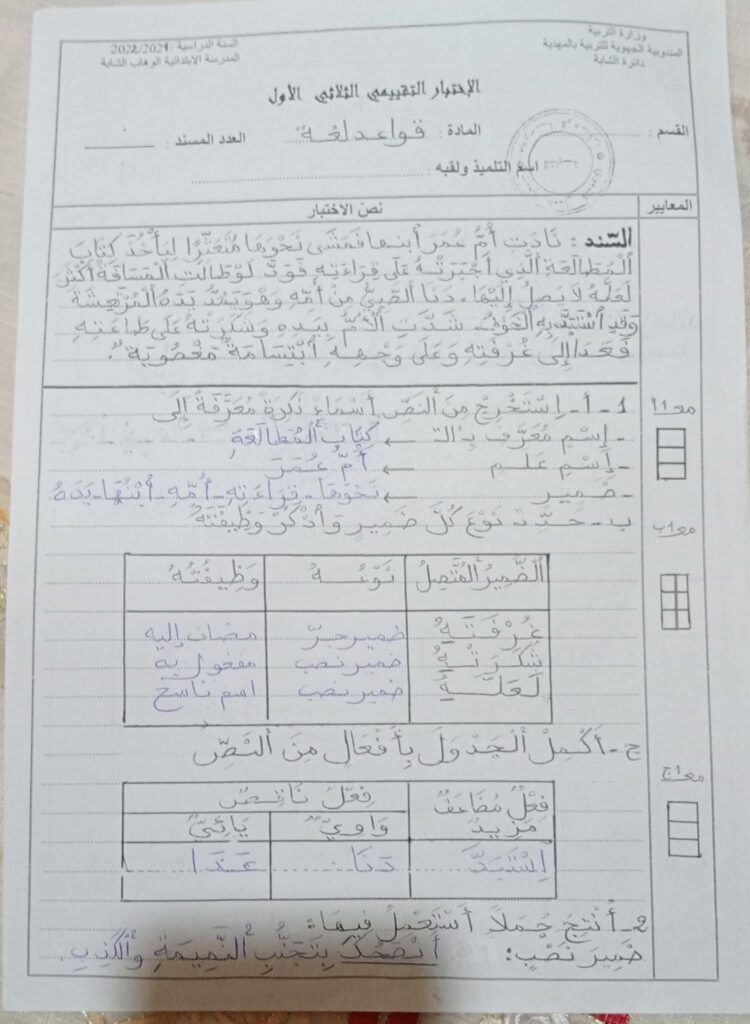 وزارة التربية
المندوبية الجهوية للتربية بالمهدية
دائرة الشابة
السنة الدراسية : 2022/2021
المدرسة الابتدائية الوهاب الشابة
الإختبار التقييمي الثلاثي الأول
القسم : المادة : قواعد لغة العدد المسند :
اسم التلميذ ولقبه :
المعايير نص الاختبار
السّند : نَادَتِ أُمُّ عُمَرَ ابنها فَمَشَى نَحْوَهَا مُتَعَثِّرًا لِيَأْخُذَ كِتَابَ
اْلمُطَالَعَةِ الَّذِي أَجْبَرَتْهُ عَلَى قِرَاءَتِهِ فَوَدَّ لَوْ طَالَتِ المَسَافَةُ أَكْثَرَ
لَعَلَّهُ لَا يَصِلُ إِلَيْهَا. دَنَا الصَّبِيُّ مِنْ أُمِّهِ وَهْوَ يَمُدُّ يَدَهُ الْمُرْتَعِشَةَ
وَقَدِ اسْتَبَدَّ بِهِ الْخَوْفُ. شَدَّتِ الْأُمُّ بِيَدِهِ وَشَكَرَتْهُ عَلَى طَاعَتِهِ
فَعَدَا إِلَى غُرْفَتِهِ وَعَلَى وَجْهِهِ ابْتِسَامَةٌ مَعْصُوبَةٌ".
مع1أ
1-أ-إِسْتَخْرِجْ مِنَ النَّصِّ أَسْمَاءَ نَكِرَةً مُعَرَّفَةً إِلَى
- إِسْمٍ مُعَرَّفٍ بِـ الـ ← كِتَابَ الْمُطَالَعَةِ
- إِسْمِ عَلَمٍ ← أُمُّ عُمَرَ
- ضَمِيرٍ ← نَحْوَهَا - قِرَاءَتِهِ - أُمِّهِ - اُبْنُهَا - يَدَهُ
مع1ب
ب- حَدِّدْ نَوْعَ كُلَّ ضَمِيرٍ وَاُذْكُرْ وَظِيفَتَهُ
اُلضَّمِيرُ اُلْمُتَّصِلُ نَوْعُـهُ وَظِيفَتُهُ
غُرْفَتِـهِ ضمير جرّ مضاف إليه
شَكَرَتْـهُ ضمير نصب مفعول به
لَعَلَّـهُ ضمير نصب اسم ناسخ
مع1ج
ج-أَكْمِلْ اُلْجَدْوَلَ بِأَفْعَالٍ مِنَ النَّصِّ
فِعْلٌ مُضَاعَفٌ مَزِيدٌ فِعْلٌ نَاقِصٌ
وَاوِيٌّ يَائِيٌّ
إِسْتَبَدَّ دَنَا عَدَا
2-أُنْتِجُ جُمَلًا أَسْتَعْمِلُ فِيهَا:
ضَمِيرَ نَصْبٍ: أَنْصَحُكَ بِتَجَنُّبِ اُلنَّمِيمَةِ وَالْكَذِبِ.